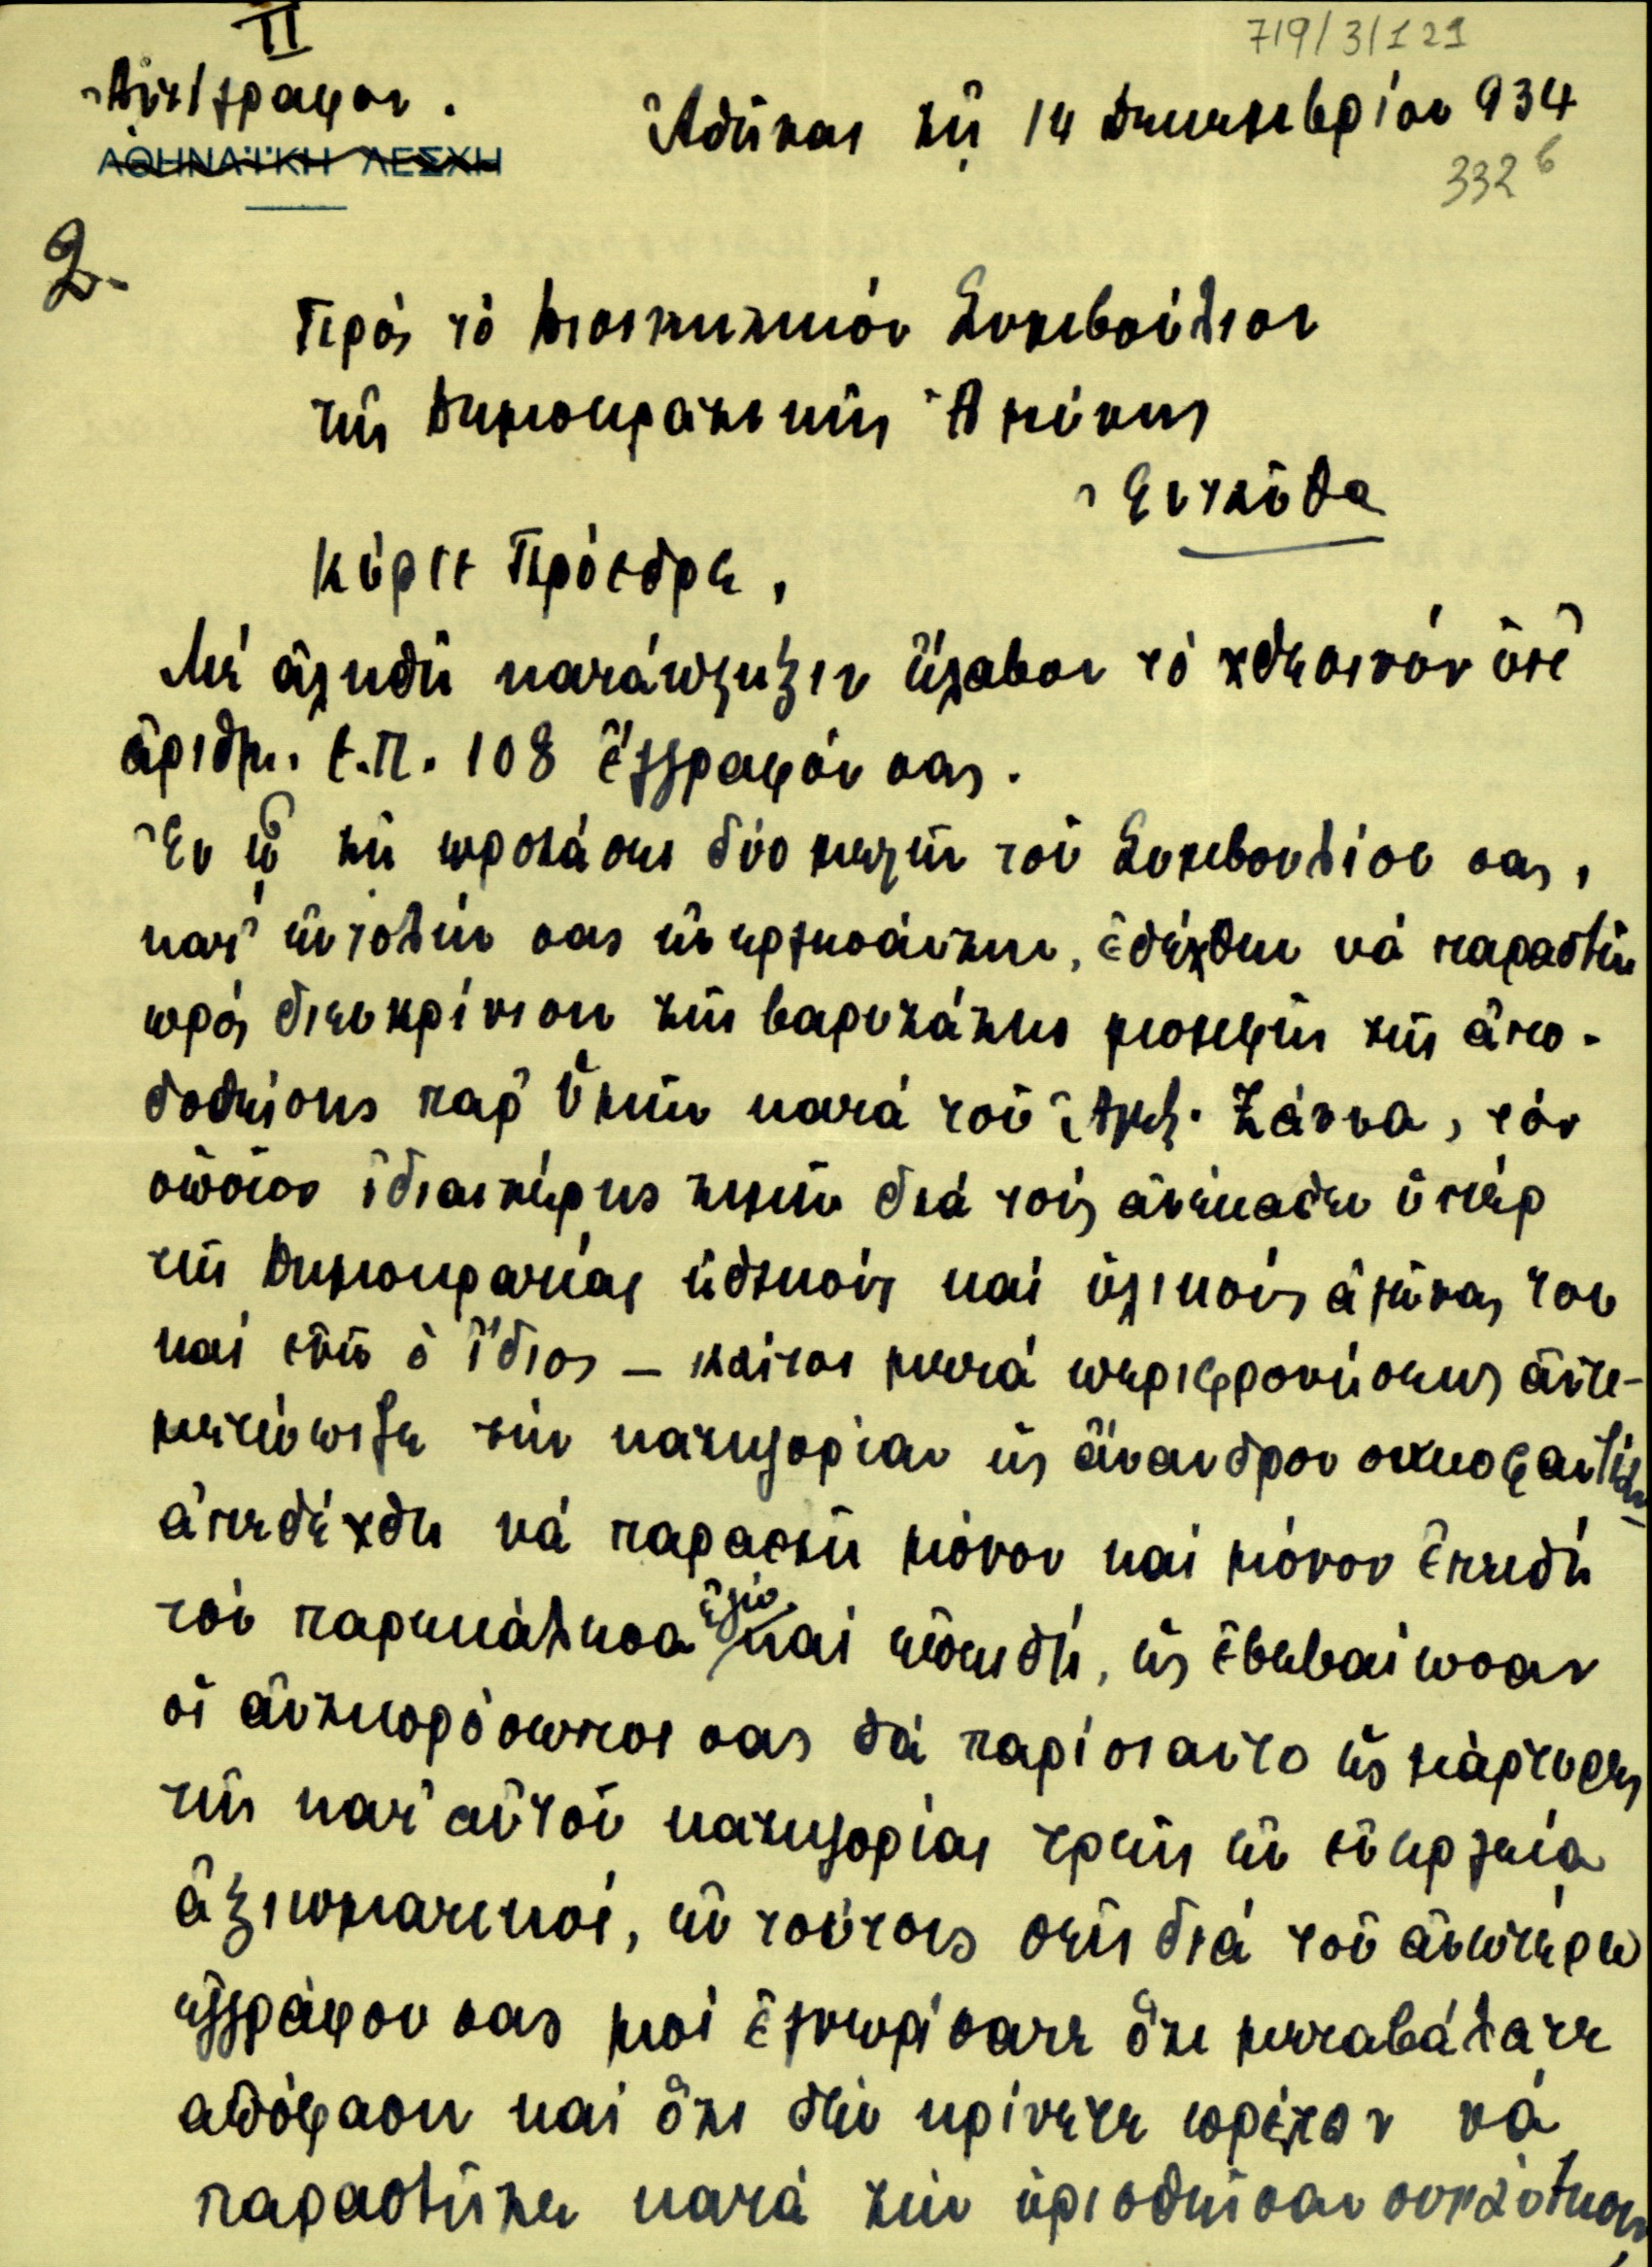 II
719/3/121
Ἀντίγραφον.
Ἀθῆναι τῇ 14 Δεκεμβρίου 934
ΑΘΗΝΑΪΚΗ ΛΕΣΧΗ
332 6
2.
Πρός τό Διοικητικόν Συμβούλιον
τῆς Δημοκρατικῆς Ἀμύνης
Ἐνταῦθα
Κύριε Πρόεδρε,
Μέ ἀληθῆ κατάπληξιν ἔλαβον τό χθεσινόν ὑπ'
ἀριθμ. ἐ.π. 108 ἔγγραφόν σας.
Ἐν ᾧ τῇ προτάσει δύο μελῶν τοῦ Συμβουλίου σας,
κατ' ἐντολήν σας ἐνεργησάντων, ἐδέχθην νά παραστῶ
πρός διευκρίνισιν τῆς βαρυτάτης μομφῆς τῆς ἀπο-
δοθείσης παρ' ὑμῶν κατά τοῦ Ἀλεξ. Ζάννα, τόν
ὁποῖον ἰδιαιτέρως τιμῶ διά τούς ἀνέκαθεν ὑπέρ
τῆς Δημοκρατίας ἠθικούς καί ὑλικούς ἀγῶνας του
καί ἐνῷ ὁ ἴδιος – καίτοι μετά περιφρονήσεως ἀντε-
μετώπιζε τήν κατηγορίαν ὡς ἄνανδρον συκοφαντίαν
ἀπεδέχθη νά παραστῇ μόνον καί μόνον ἐπειδή
τόν παρεκάλεσα ἐγώ καί ἐπειδή, ὡς ἐβεβαίωσαν
οἱ ἀντιπρόσωποί σας θά παρίσταντο ὡς μάρτυρες
τῆς κατ' αὐτοῦ κατηγορίας τρεῖς ἐν ἐνεργείᾳ
ἀξιωματικοί, ἐν τούτοις σεῖς διά τοῦ ἀνωτέρω
ἐγγράφου σας μοί ἐγνωρίσατε ὅτι μετεβάλατε
ἀπόφασιν καί ὅτι δέν κρίνετε πρέπον νά
παραστῆτε κατά τήν ὁρισθεῖσαν συνάντησιν